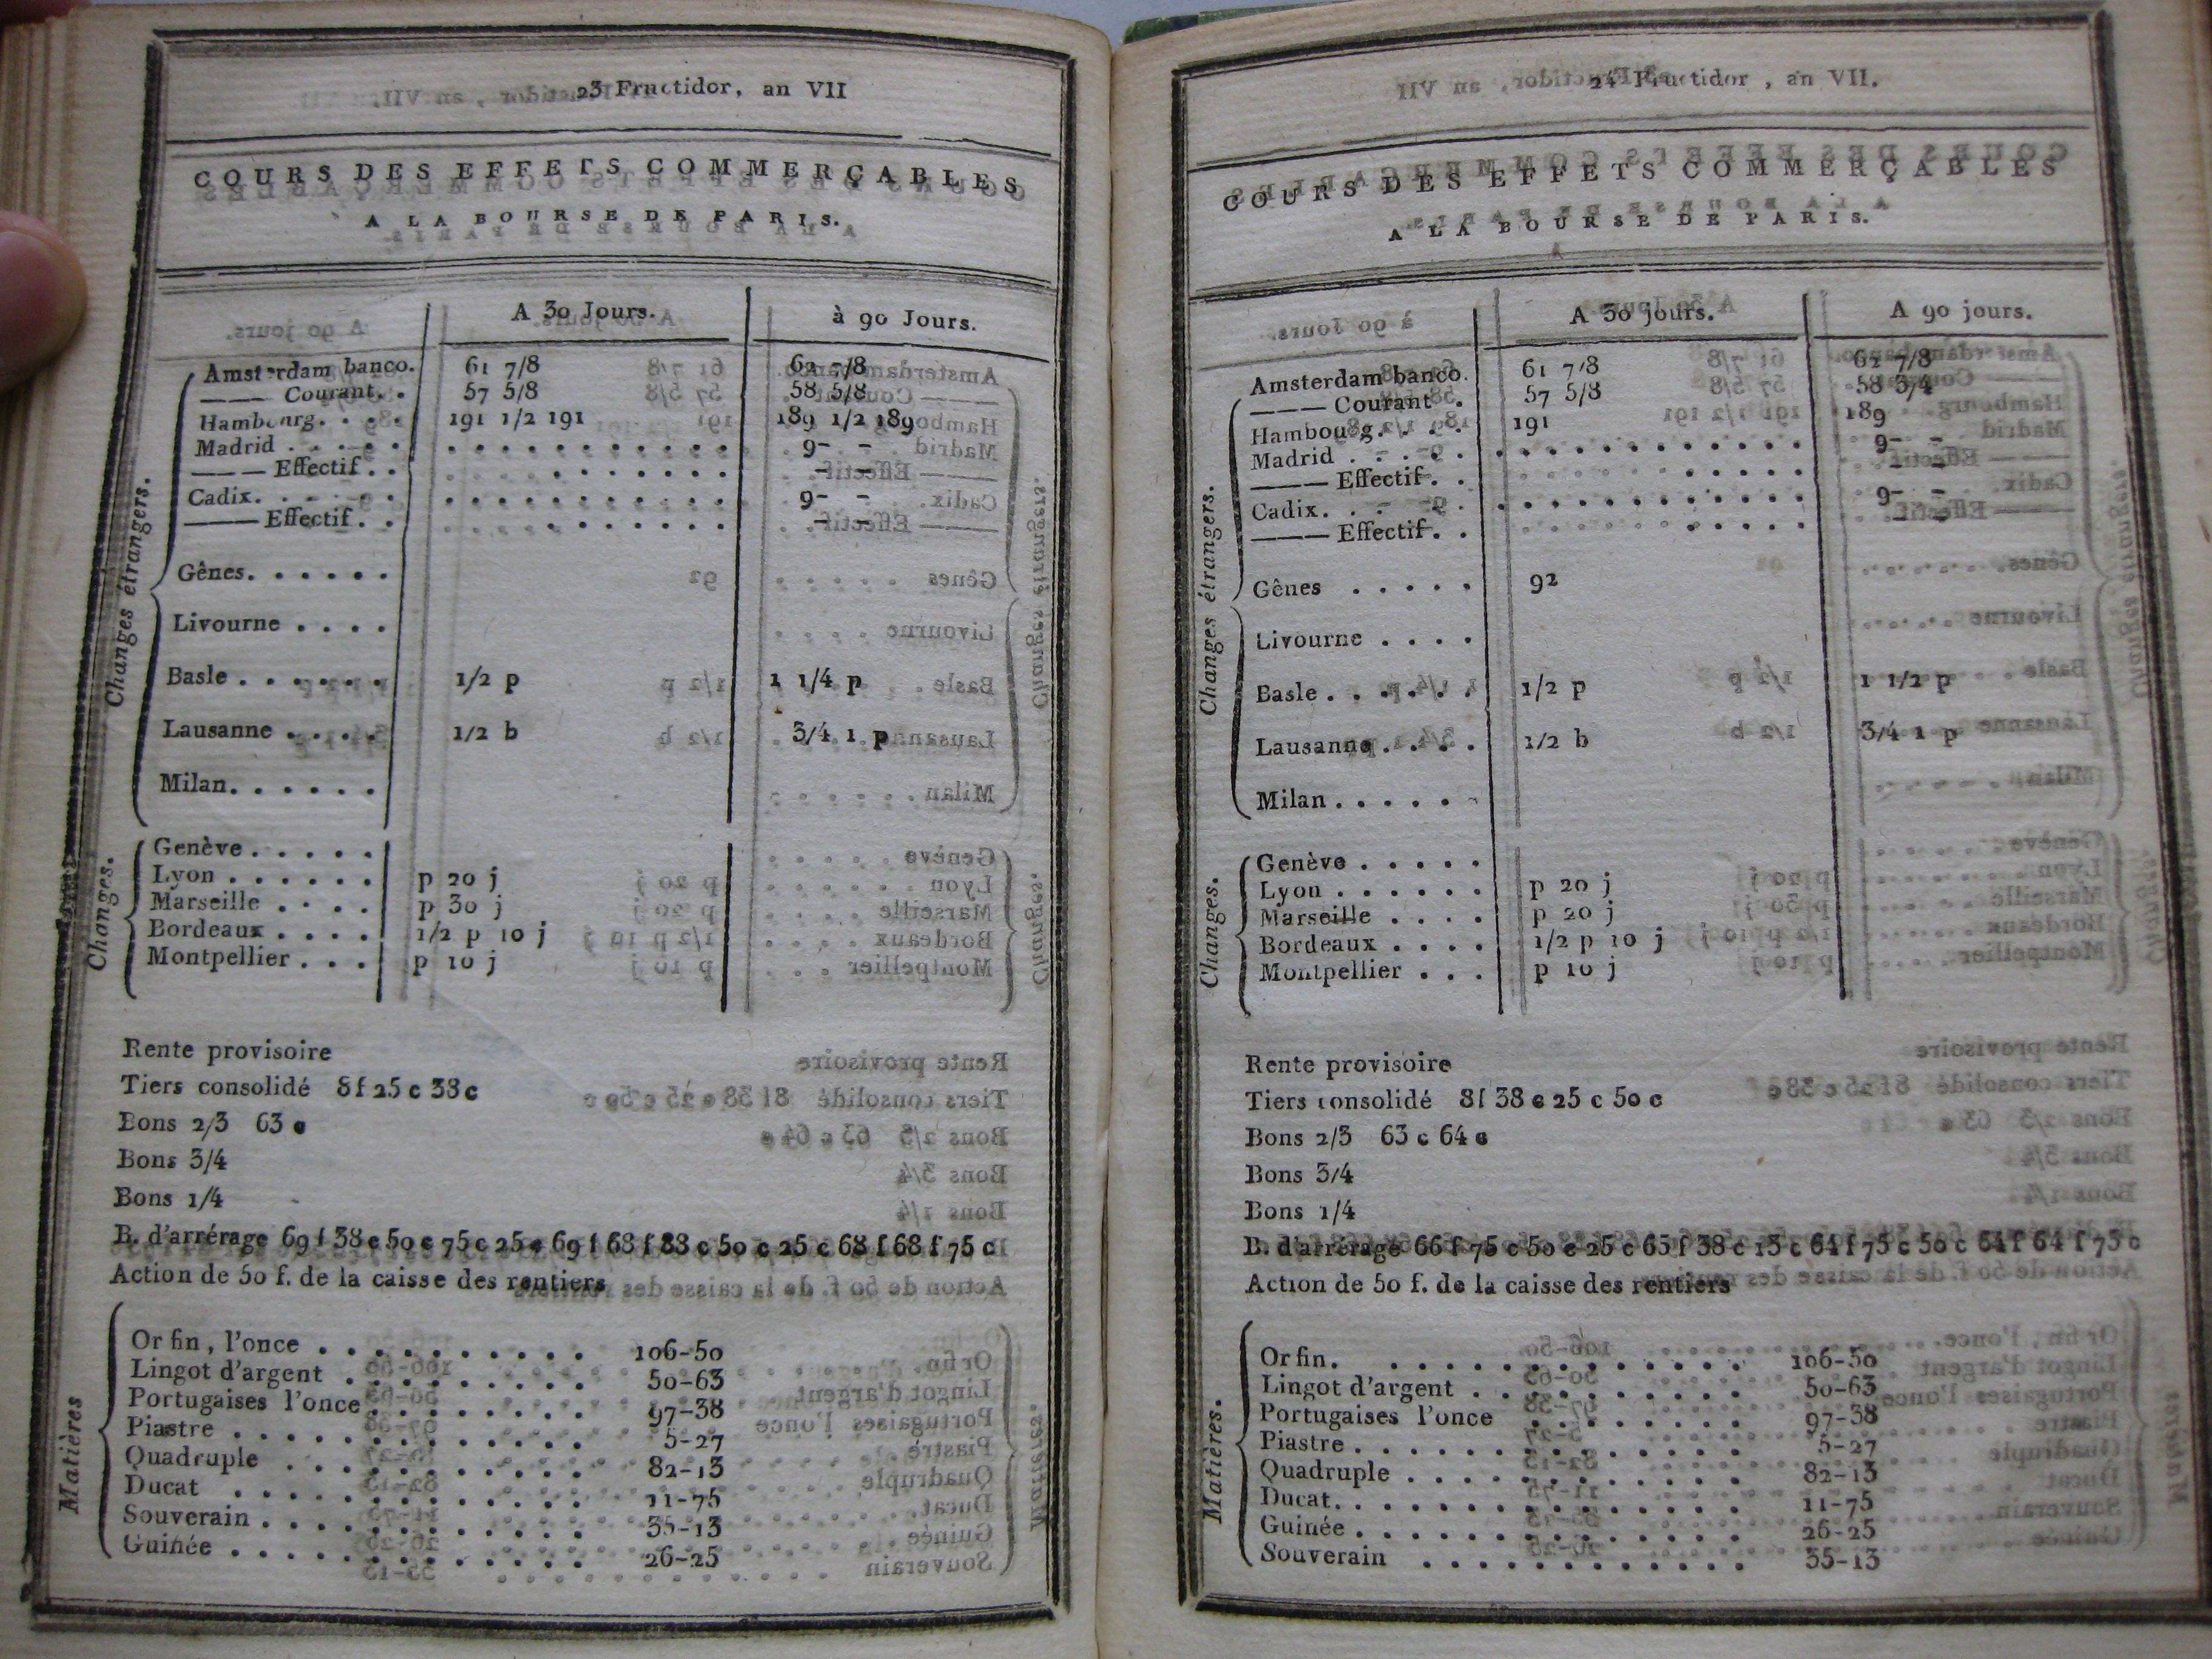 23 Fructidor, an VII
COURS DES EFFETS COMMERÇABLES
A LA BOURSE DE PARIS.
A 30 Jours. à 90 Jours.
Changes étrangers.
Amsterdam banco. 61 7/8 62 7/8
——— Courant. . 57 5/8 58 5/8
Hambourg. . . . 191 1/2 191 189 1/2 189
Madrid . . . . . . . . . . . . . . . . 9- -
——— Effectif . . . . . . . . . . - -
Cadix. . . . . . . . . . . . . . . . . 9- -
——— Effectif . . . . . . . . . . - -
Gênes. . . . . .
Livourne . . . .
Basle . . . . . . 1/2 p 1 1/4 p
Lausanne . . . . 1/2 b 3/4 1 p
Milan. . . . . .
Changes.
Genève . . . . .
Lyon . . . . . . p 20 j
Marseille . . . . p 30 j
Bordeaux . . . . 1/2 p 10 j
Montpellier . . . p 10 j
Rente provisoire
Tiers consolidé 8 f 25 c 38 c
Bons 2/3 63 c
Bons 3/4
Bons 1/4
B. d'arrérage 69 f 38 c 50 c 75 c 25 c 69 f 68 f 88 c 50 c 25 c 68 f 68 f 75 c
Action de 50 f. de la caisse des rentiers
Matières
Or fin, l'once . . . . . . . . . . 106-50
Lingot d'argent . . . . . . . . . 50-63
Portugaises l'once . . . . . . . . 97-38
Piastre . . . . . . . . . . . . . 5-27
Quadruple . . . . . . . . . . . 82-13
Ducat . . . . . . . . . . . . . 11-75
Souverain . . . . . . . . . . . . 35-13
Guinée . . . . . . . . . . . . . 26-25
24 Fructidor, an VII.
COURS DES EFFETS COMMERÇABLES
A LA BOURSE DE PARIS.
A 30 jours. A 90 jours.
Changes étrangers.
Amsterdam banco. 61 7/8 62 7/8
——— Courant . 57 5/8 58 3/4
Hambourg. . . . 191 189
Madrid . . . . . . . . . . . . . . . . 9- -
——— Effectif. . . . . . . . . . - -
Cadix. . . . . . . . . . . . . . . . . 9- -
——— Effectif. . . . . . . . . .
Gênes . . . . . 92
Livourne . . . .
Basle . . . . . . 1/2 p 1 1/2 p
Lausanne . . . . 1/2 b 3/4 1 p
Milan . . . . . .
Changes.
Genève . . . . .
Lyon . . . . . . p 20 j
Marseille . . . . p 20 j
Bordeaux . . . . 1/2 p 10 j
Montpellier . . . p 10 j
Rente provisoire
Tiers consolidé 8 f 38 c 25 c 50 c
Bons 2/3 63 c 64 c
Bons 3/4
Bons 1/4
B. d'arrérage 66 f 75 c 50 c 25 c 65 f 38 c 13 c 64 f 75 c 50 c 64 f 64 f 75 c
Action de 50 f. de la caisse des rentiers
Matières.
Or fin. . . . . . . . . . . . . 106-50
Lingot d'argent . . . . . . . . . 50-63
Portugaises l'once . . . . . . . 97-38
Piastre . . . . . . . . . . . . . 5-27
Quadruple . . . . . . . . . . . 82-13
Ducat. . . . . . . . . . . . . . 11-75
Guinée . . . . . . . . . . . . . 26-25
Souverain . . . . . . . . . . . 35-13